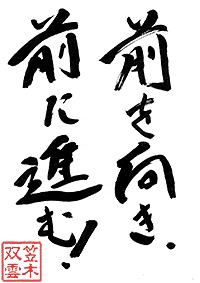 前を向き、
前に進む!
笠木
双雲